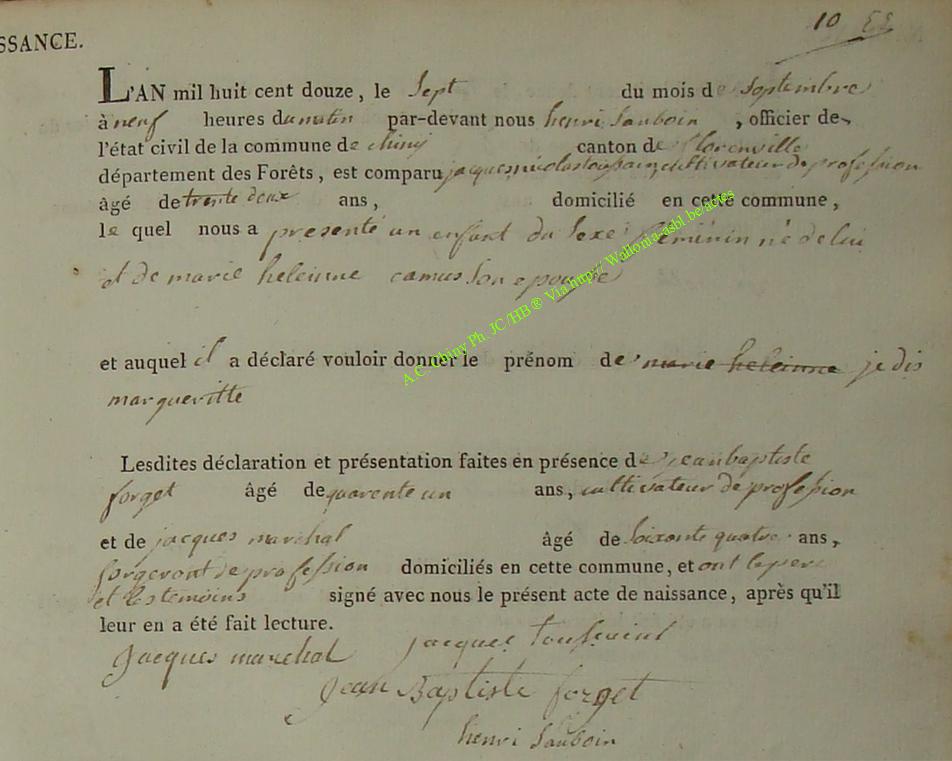 SSANCE.
10
L'AN mil huit cent douze, le sept du mois de septembre
à neuf heures du matin par-devant nous henri Sauboin, officier de
l'état civil de la commune de chiny canton de florenville
département des Forêts, est comparu jacques nicolas toussain, cultivateur de profession
âgé de trente deux ans, domicilié en cette commune,
le quel nous a presenté un enfant du sexe féminin né de lui
et de marie heleinne camus son epouse
et auquel il a déclaré vouloir donner le prénom de marie heleinne je dis
margueritte
Lesdites déclaration et présentation faites en présence de jean baptiste
forget âgé de quarente un ans, cultivateur de profession
et de jacques marchal âgé de soixante quatre ans,
forgeront de profession domiciliés en cette commune, et ont le pere
et les temoins signé avec nous le présent acte de naissance, après qu'il
leur en a été fait lecture.
jacques marchal jacques toussaint
jean Baptiste forget
henri Sauboin
A.C. Chiny Ph. JC /HB ® Via http// Wallonia-asbl be/actes